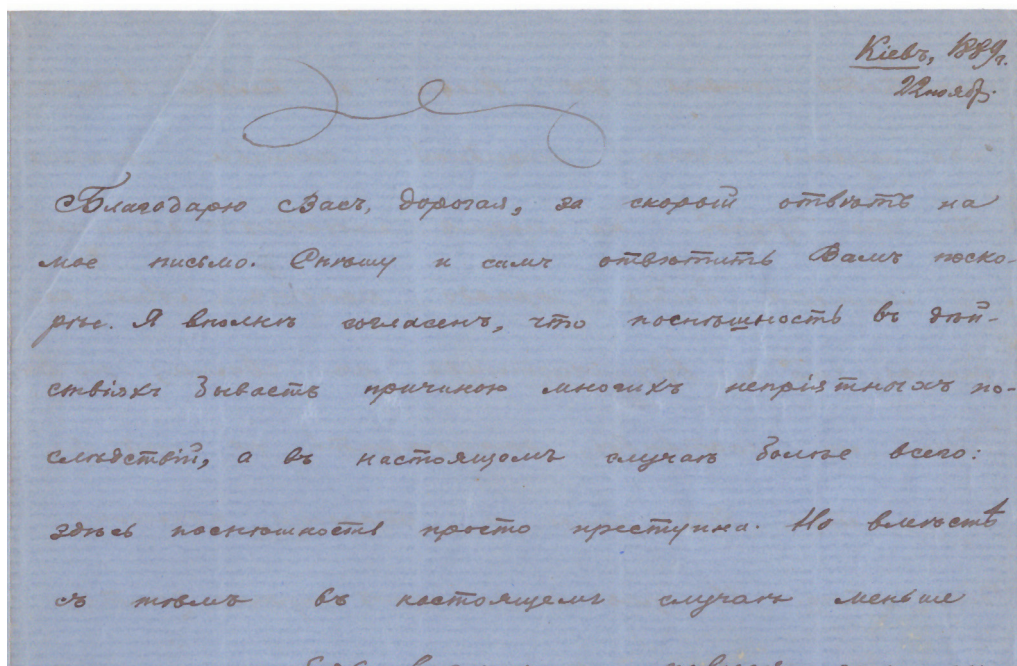 Кіевъ, 1889г.
22 нояб.
Благодарю Васъ, дорогая, за скорый отвѣтъ на
мое письмо. Спѣшу и самъ отвѣтить Вамъ поско-
рѣе. Я вполнѣ согласенъ, что поспѣшность въ дѣй-
ствіяхъ бываетъ причиною многихъ непріятныхъ по-
слѣдствій, а въ настоящемъ случаѣ болѣе всего:
здѣсь поспѣшность просто преступна. Но вмѣстѣ
съ тѣмъ въ настоящемъ случаѣ меньше